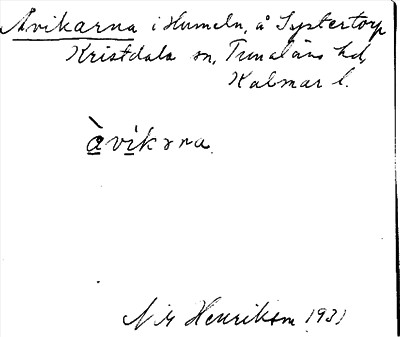 Åvikarna i Humeln, å Systertorp
Kristdala sn, Tunaläns hd,
Kalmar l.
àvikərna.
N. G. Henrikson 1931